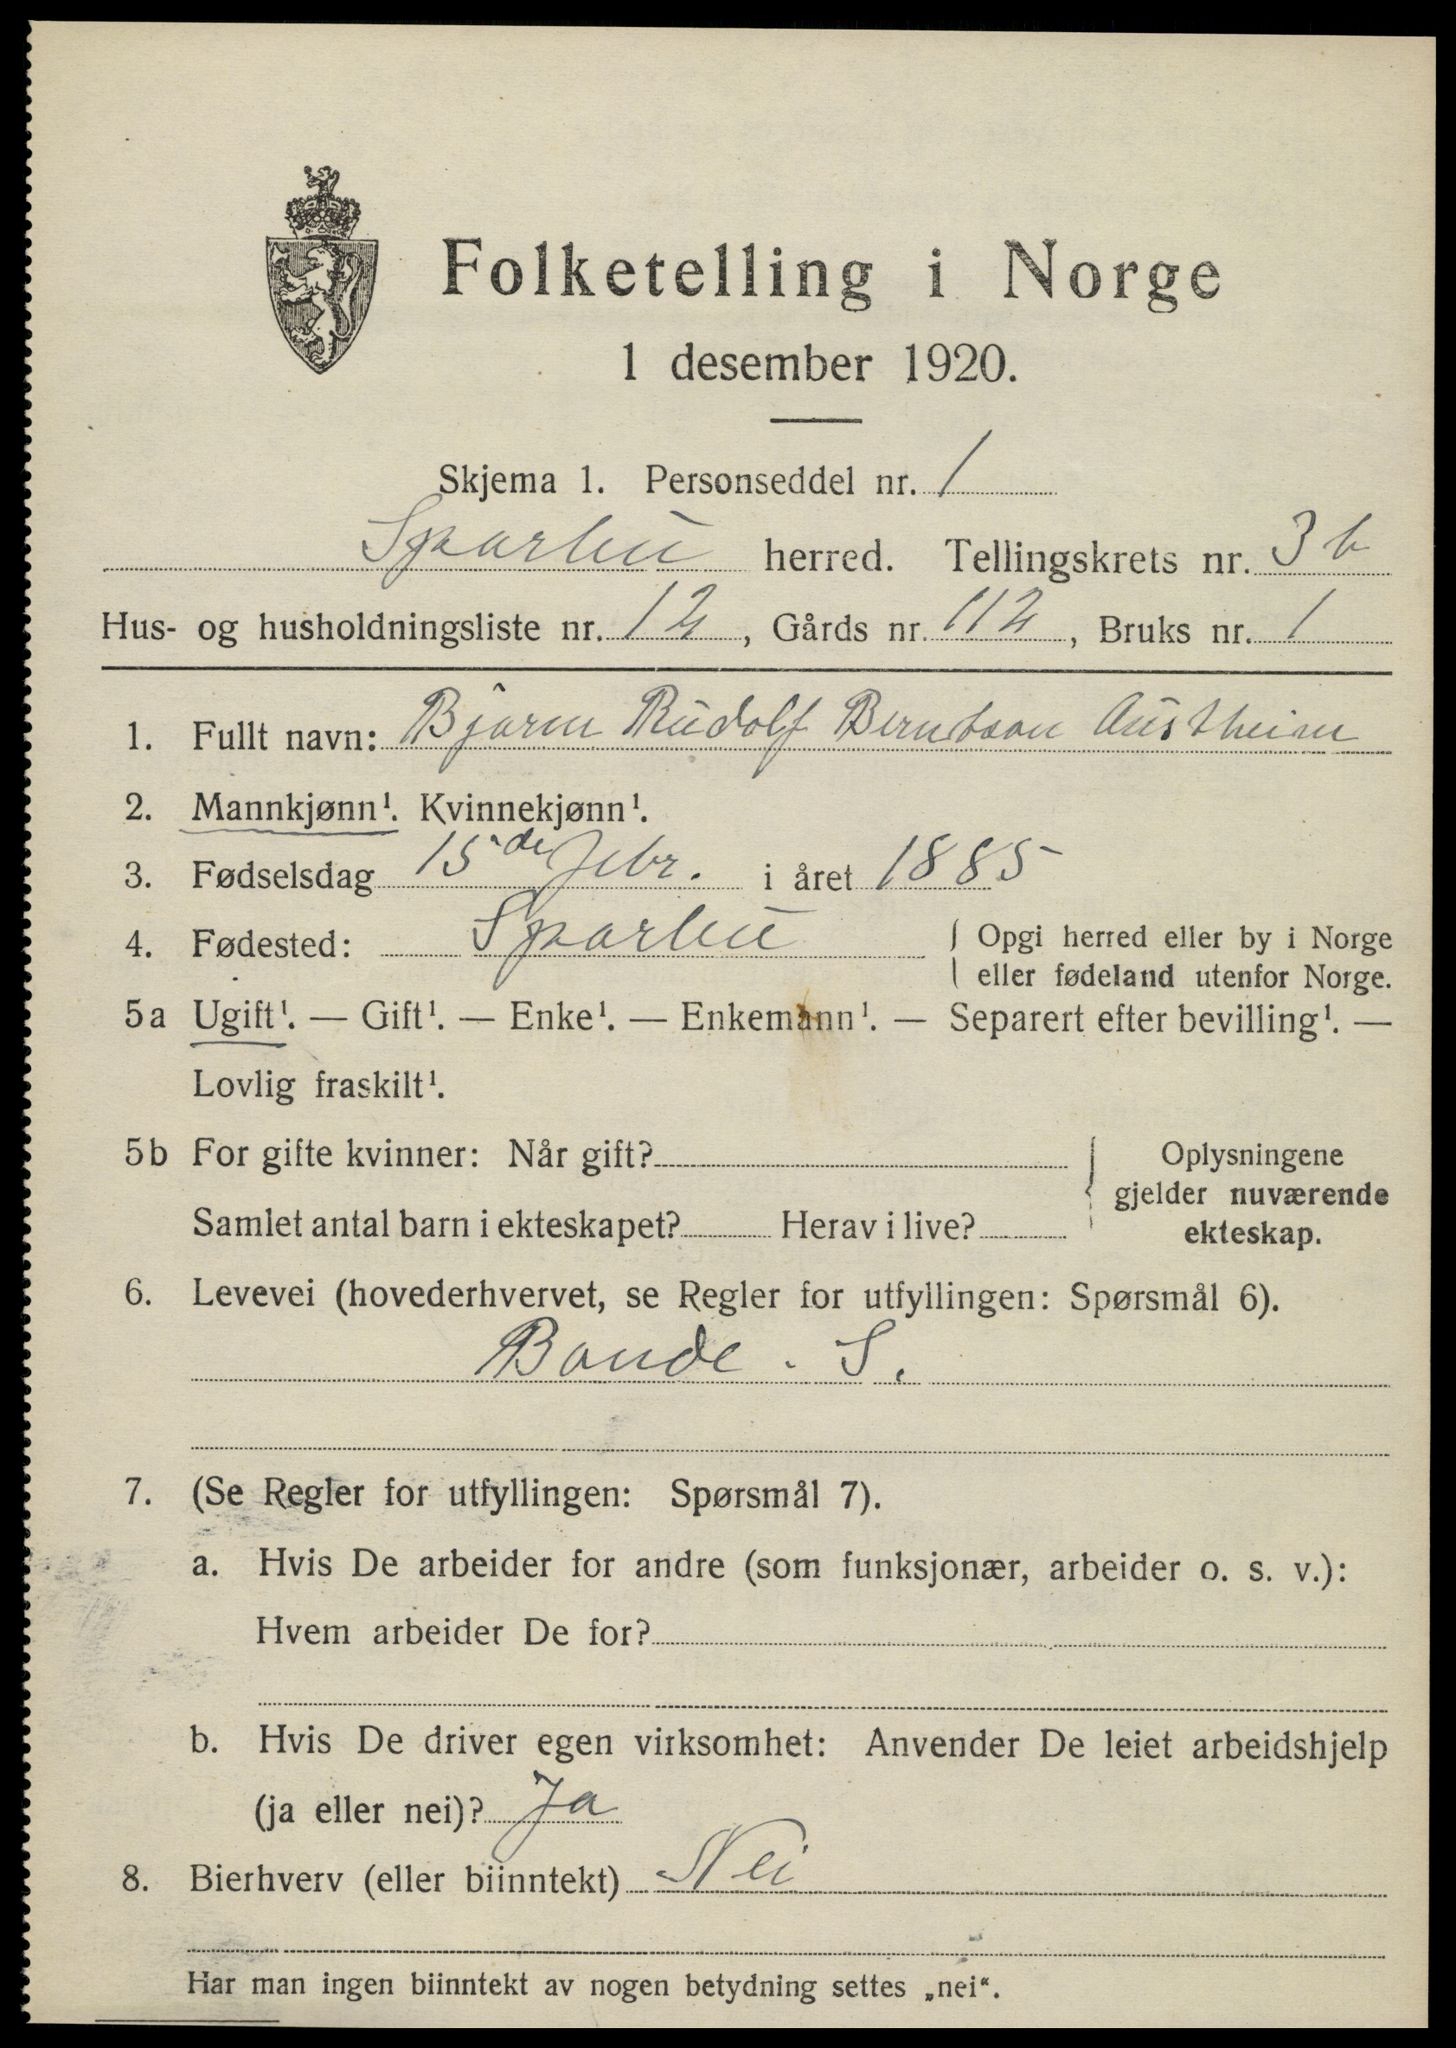 Folketelling i Norge
1 desember 1920.
Skjema 1. Personseddel nr. 1
Sparbu herred. Tellingskrets nr. 3 b
Hus- og husholdningsliste nr. 12, Gårds nr. 112, Bruks nr. 1
1. Fullt navn: Bjarne Rudolf Berntsen Austheim
2. Mannkjønn¹. Kvinnekjønn¹.
3. Fødselsdag 15 de febr. i året 1885
4. Fødested: Sparbu { Opgi herred eller by i Norge
eller fødeland utenfor Norge.
5a Ugift¹. — Gift¹. — Enke¹. — Enkemann¹. — Separert efter bevilling¹. —
Lovlig fraskilt¹.
5b For gifte kvinner: Når gift? { Oplysningene
gjelder nuværende
Samlet antal barn i ekteskapet? Herav i live? ekteskap.
6. Levevei (hovederhvervet, se Regler for utfyllingen: Spørsmål 6).
Bonde. S.
7. (Se Regler for utfyllingen: Spørsmål 7).
a. Hvis De arbeider for andre (som funksjonær, arbeider o. s. v.):
Hvem arbeider De for?
b. Hvis De driver egen virksomhet: Anvender De leiet arbeidshjelp
(ja eller nei)? Ja
8. Bierhverv (eller biinntekt) Nei
Har man ingen biinntekt av nogen betydning settes „nei“.